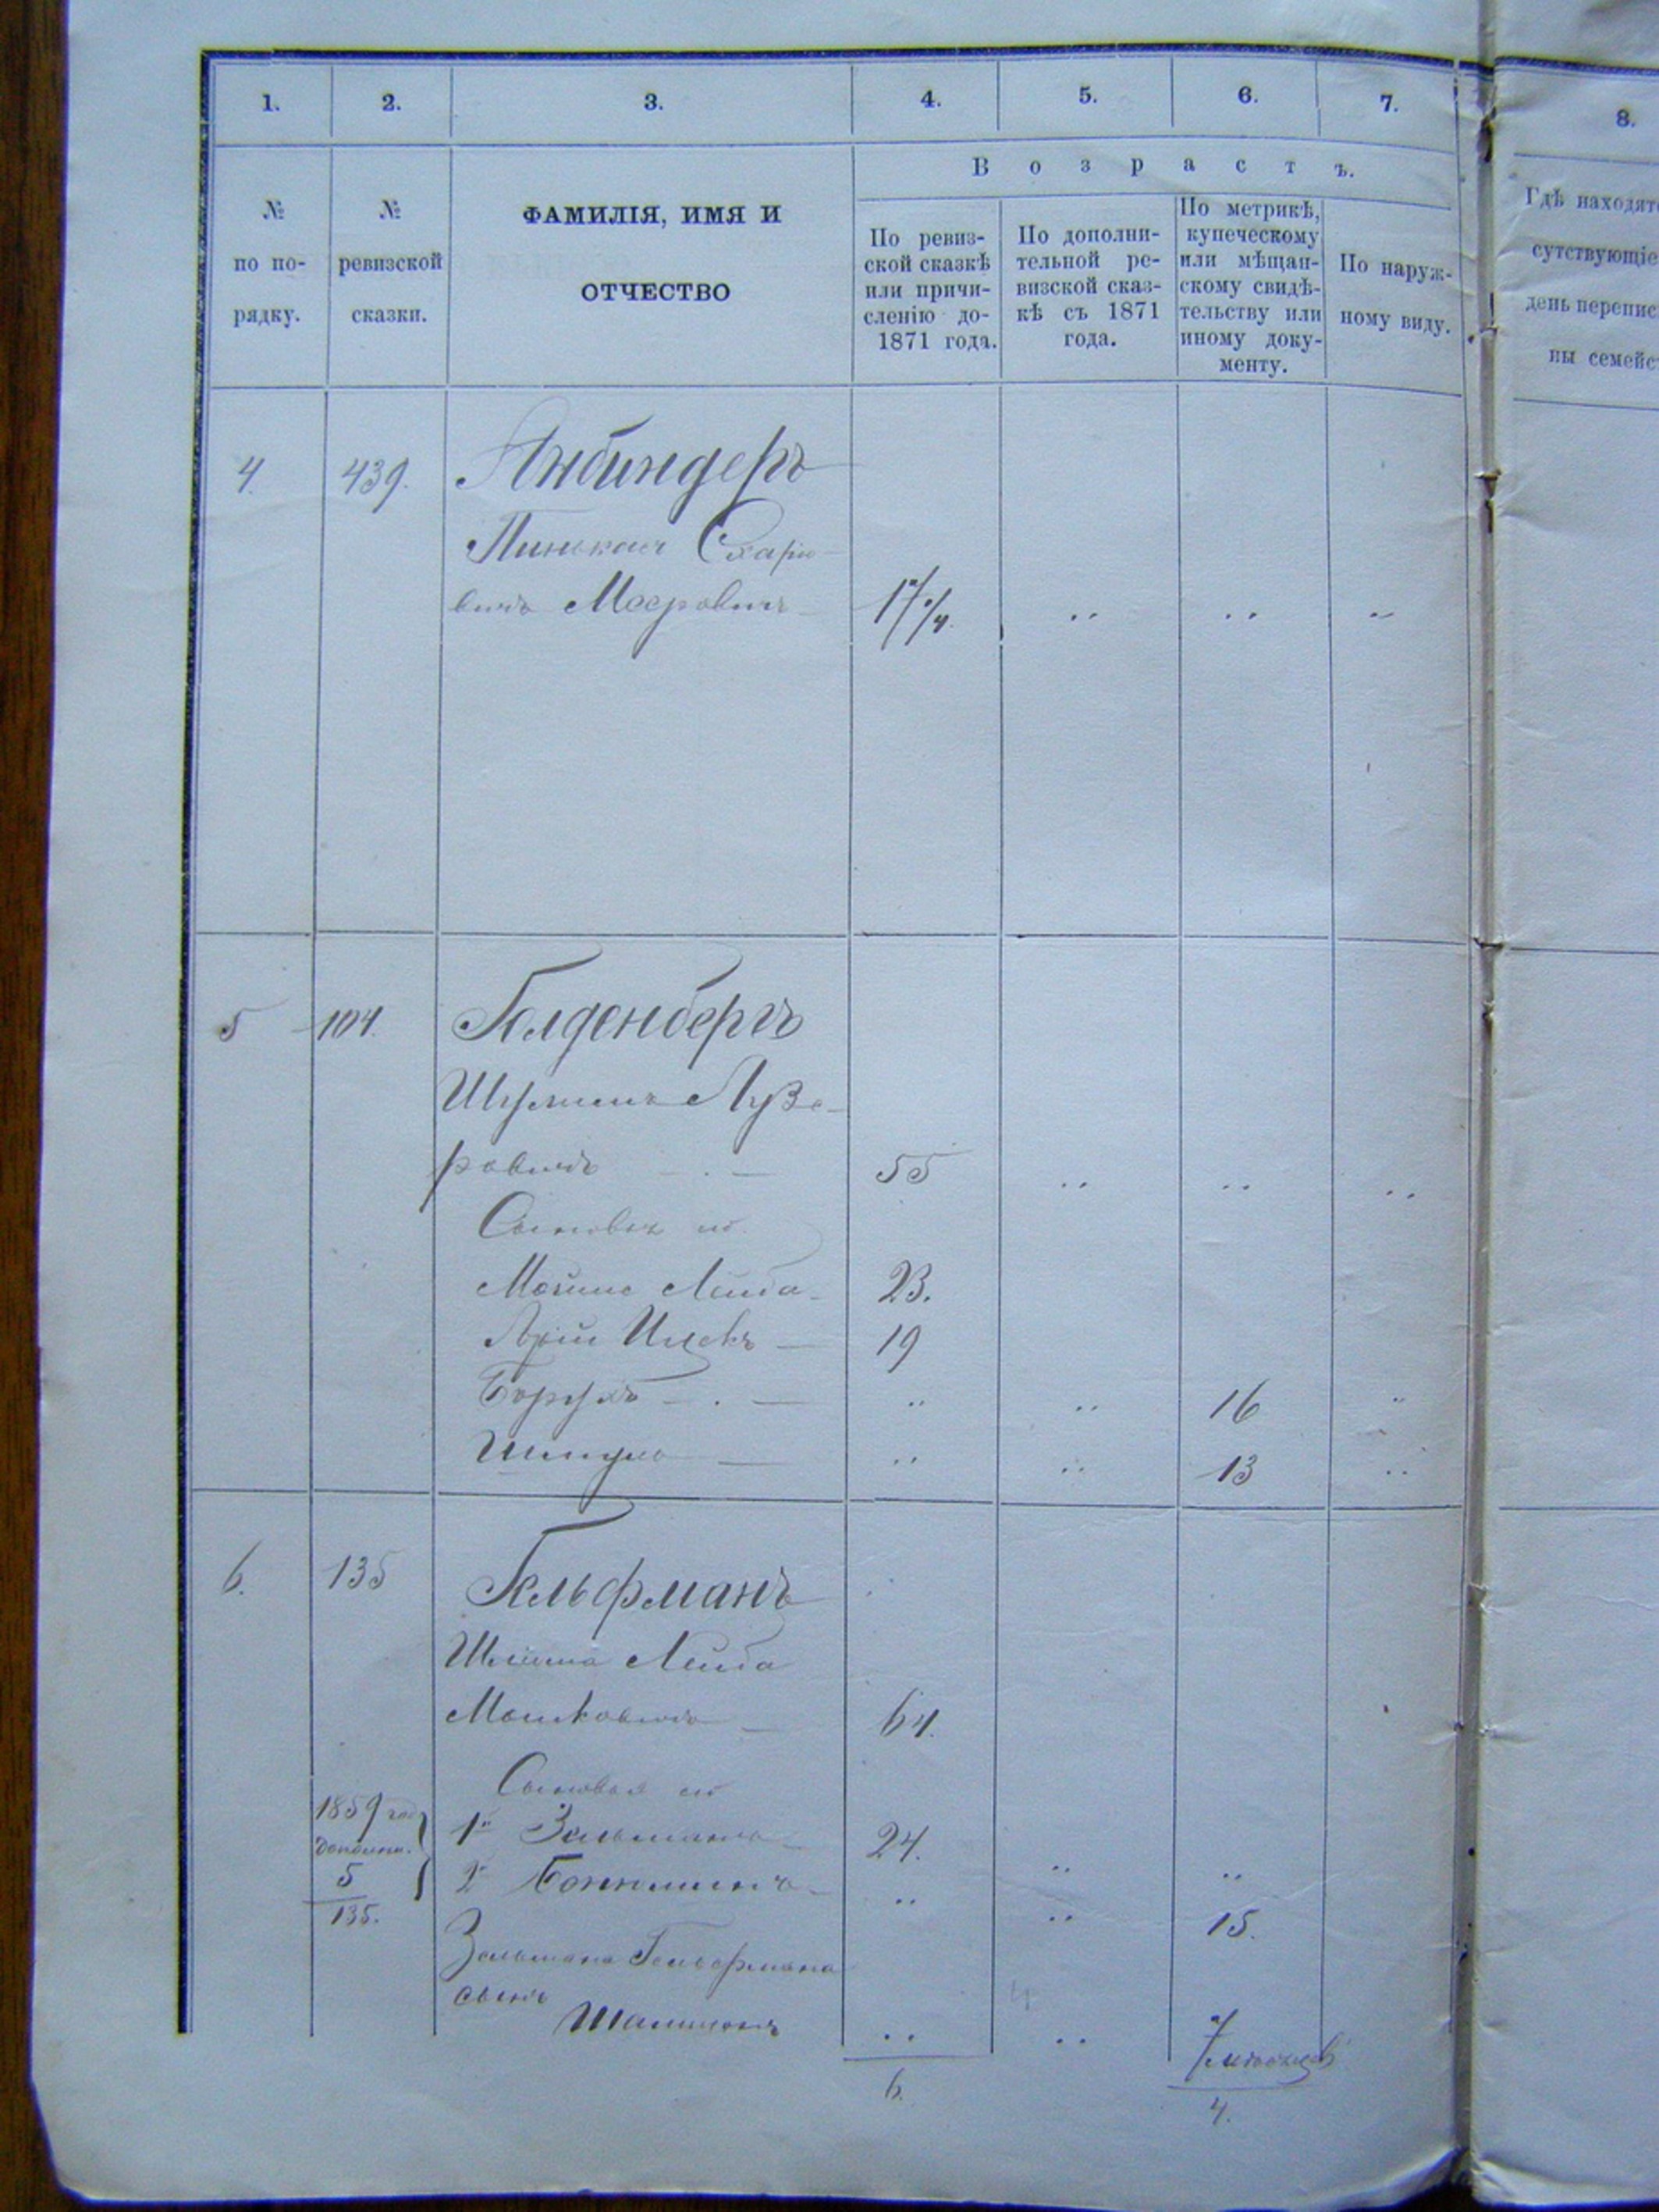 1.
2.
3.
4.
5.
6.
7.
8.
В о з р а с т ъ.
№
по по-
рядку.
№
ревизской
сказки.
ФАМИЛІЯ, ИМЯ И
ОТЧЕСТВО
По ревиз-
ской сказкѣ
или причи-
сленію до-
1871 года.
По дополни-
тельной ре-
визской сказ-
кѣ съ 1871
года.
По метрикѣ,
купеческому
или мѣщан-
скому свидѣ-
тельству или
иному доку-
менту.
По наруж-
ному виду.
Гдѣ находят
сутствующіе
день перепис
ны семейс
4. 439. Анбиндеръ
Пинькасъ
вичъ Мееровичъ
5 104. Голденберг
Шулимъ Лузе-
ровичъ 55
Сыновья его
Мойше Лейба 23.
Арій Ицекъ 19
Борухъ 16
Шмуль 13
6. 135 Гельфманъ
Шлiома Лейба
Мошковичъ 64.
Сыновья его
1859 год
дополни.
5
135.
1й Зельманъ 24.
2й 15.
Зельмана Гельфмана
сынъ
7 мѣсяцевъ
6.
4.